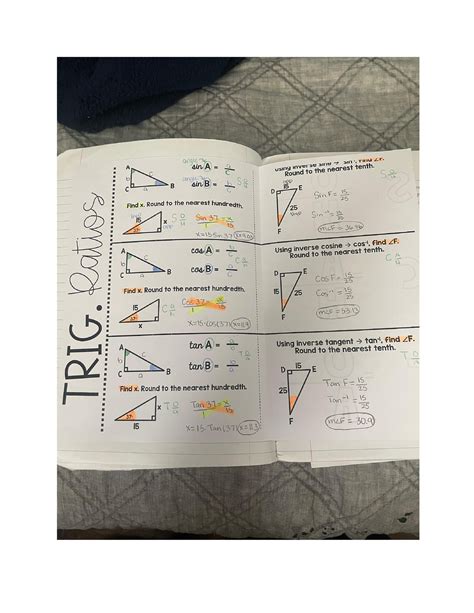 TRIG. Ratios
A
b
c
C
a
B
sin A =
sin B =
Find x. Round to the nearest hundredth.
15
x
37
Sin 37 = x
1
15
x=15·Sin 37
A
b
c
C
a
B
cos A =
cos B =
Find x. Round to the nearest hundredth.
15
37
x
Cos 37 = x
1
15
x=15·cos(37)
A
b
c
C
a
B
tan A =
tan B =
Find x. Round to the nearest hundredth.
37
x
15
Tan 37 = x
1
15
x=15·Tan(37) x=11.3
Using inverse sine → sin⁻¹, find ∠F.
Round to the nearest tenth.
D
15
E
25
F
Sin F = 15
25
Sin⁻¹ = 15
25
Using inverse cosine → cos⁻¹, find ∠F.
Round to the nearest tenth.
D
E
15
25
F
Cos F = 15
25
Cos⁻¹ = 15
25
m∠F = 53.13
Using inverse tangent → tan⁻¹, find ∠F.
Round to the nearest tenth.
D
15
E
25
F
Tan F = 15
25
Tan⁻¹ = 15
25
m∠F = 30.9